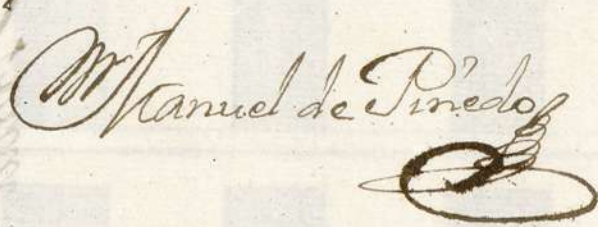 Manuel de Pinedo